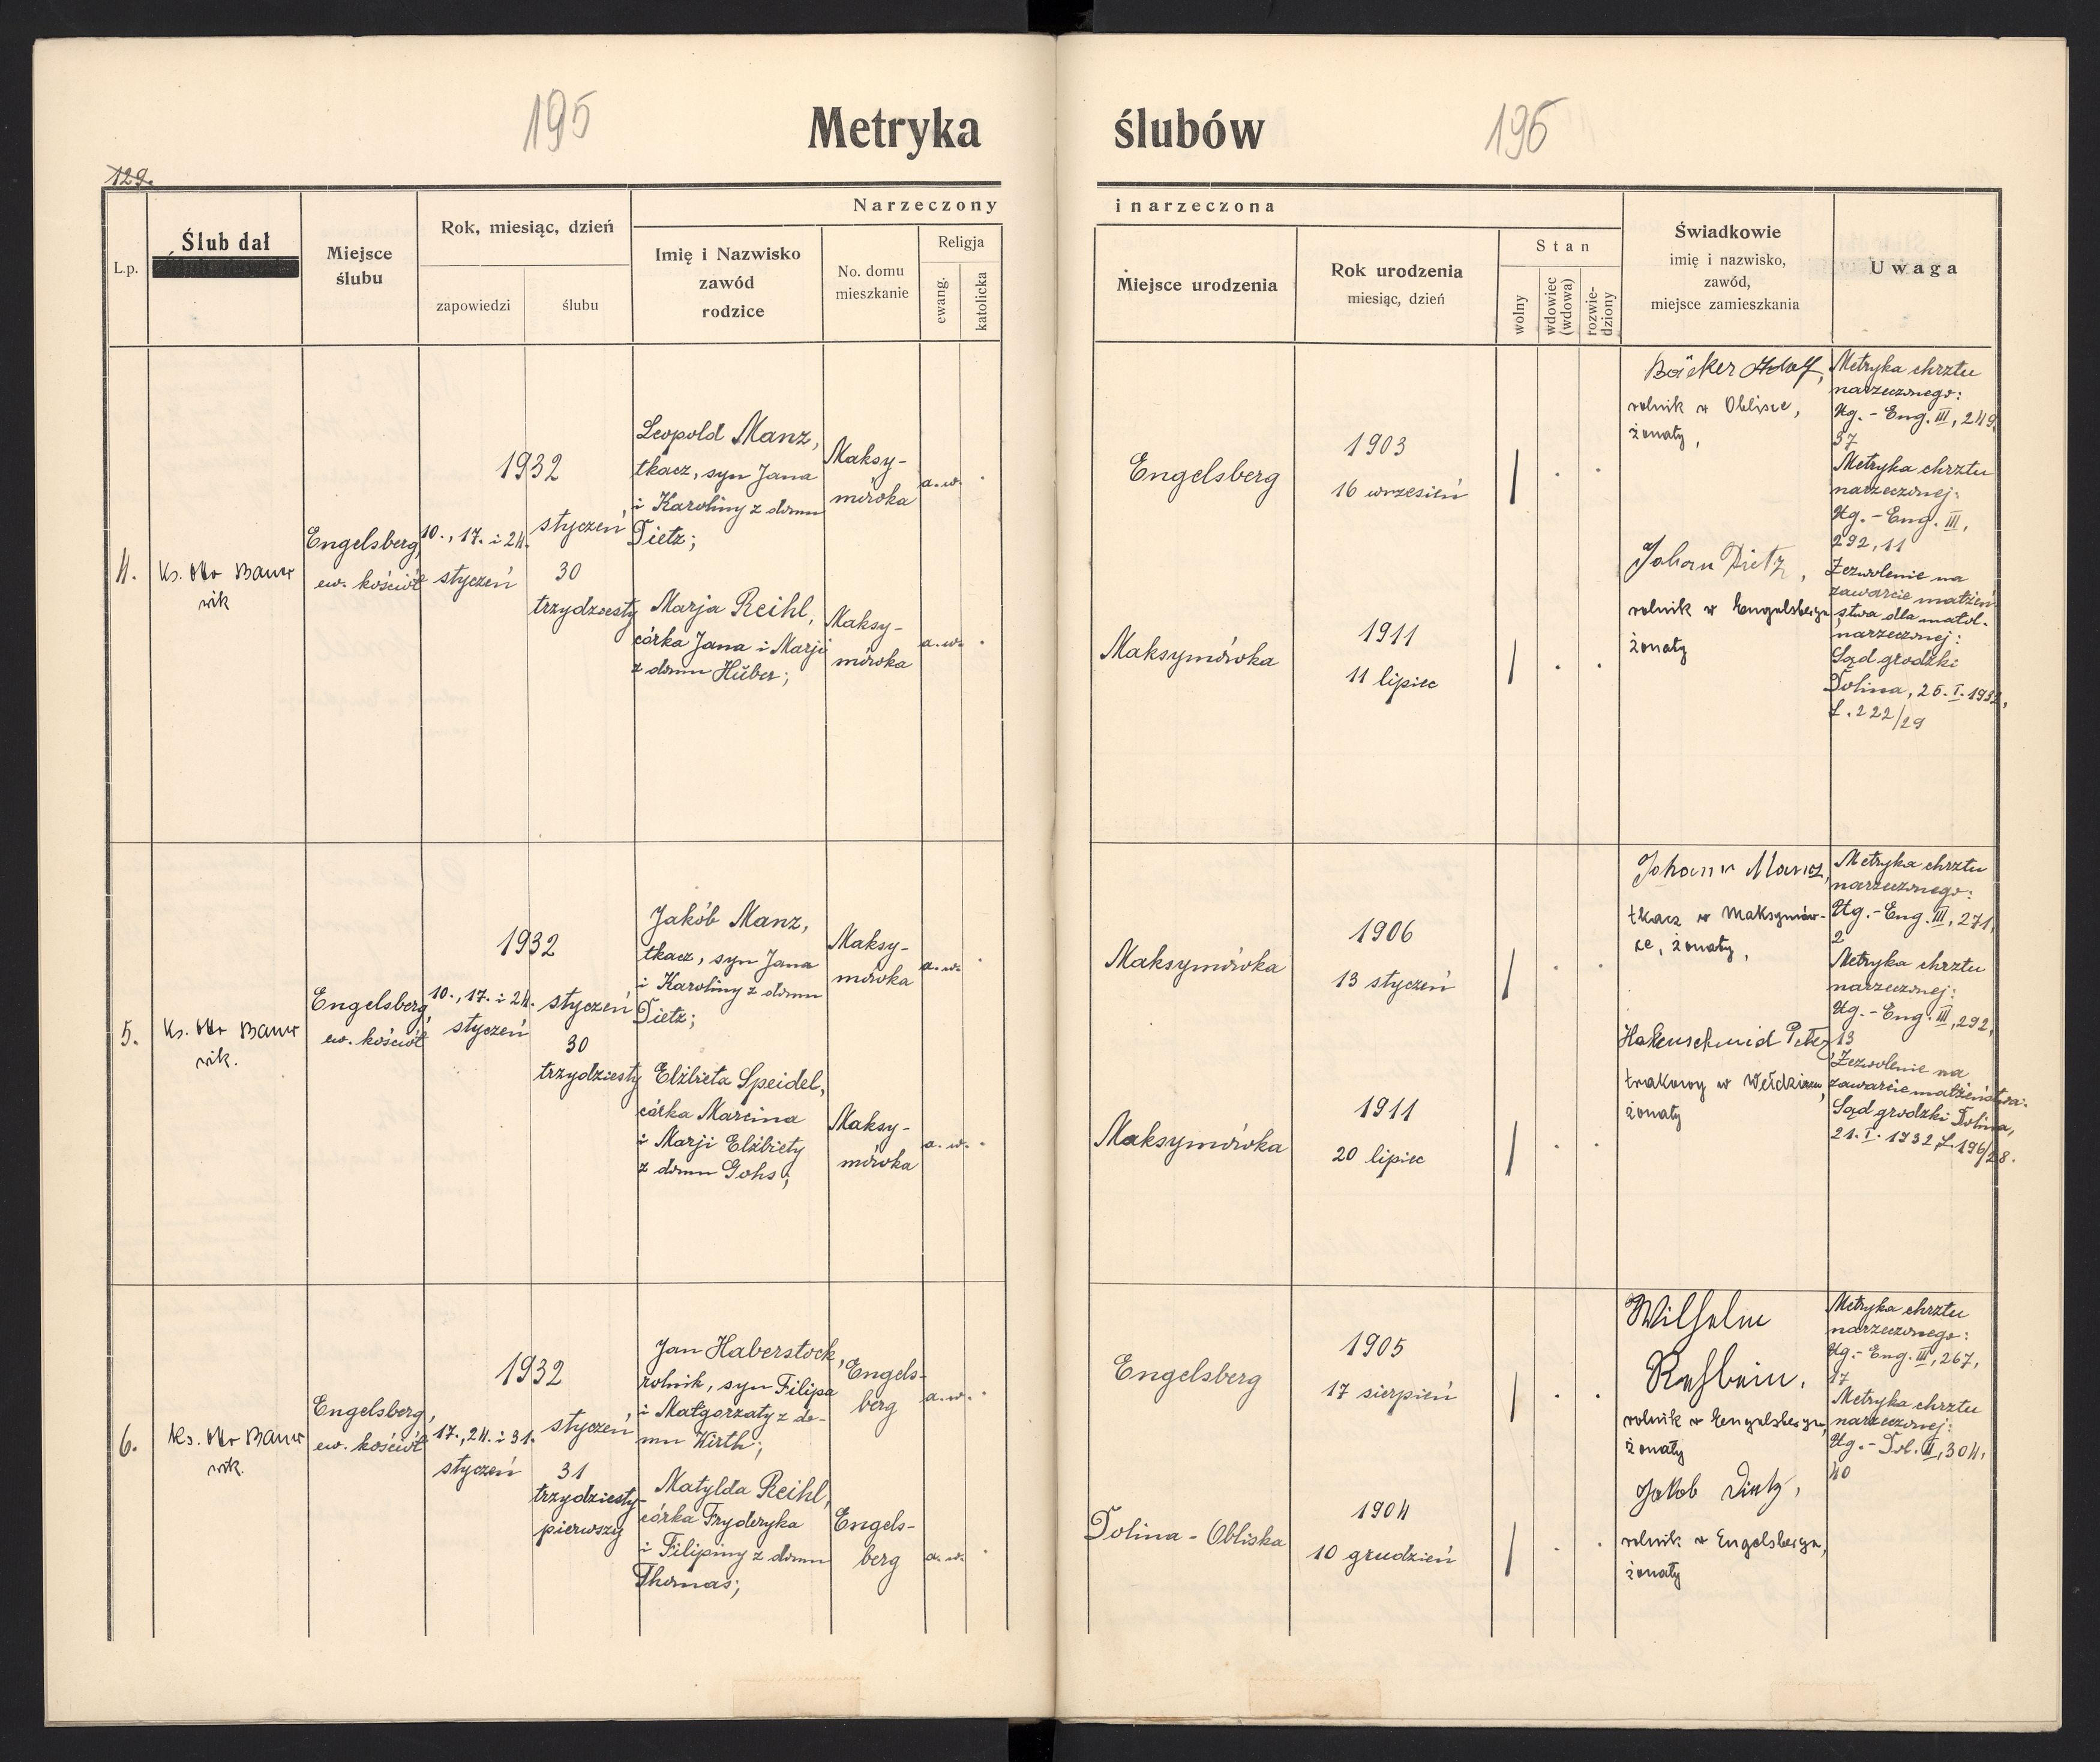 195
Metryka
ślubów
196
129.
L.p.
Ślub dał
Miejsce
ślubu
Rok, miesiąc, dzień
zapowiedzi
ślubu
Narzeczony
Imię i Nazwisko
zawód
rodzice
No. domu
mieszkanie
Religja
ewang.
katolicka
i narzeczona
Miejsce urodzenia
Rok urodzenia
miesiąc, dzień
Stan
wolny
wdowiec
(wdowa)
rozwie-
dziony
Świadkowie
imię i nazwisko,
zawód,
miejsce zamieszkania
Uwaga
4.
Ks.
Engelsberg,
ew. kościół
1932
10., 17. i 24.
styczeń
styczeń
30
trzydziesty
Leopold Manz,
tkacz, syn Jana
i Karoliny z domu
Dietz;
Maksy-
mówka
a.w.
Marja Reihl,
córka Jana i Marji
z domu Hüber;
Maksy-
mówka
a.w.
Engelsberg
1903
16 wrzesień
Maksymówka
1911
11 lipiec
Bäcker Adolf,
rolnik w Oblisce,
żonaty,
Johan Dietz,
rolnik w Engelsbergu,
żonaty
Metryka chrztu
narzeczonego:
Ug. - Eng. III, 249,
37
Metryka chrztu
narzeczonej:
Ug. - Eng. III,
292, 11
Zezwolenie na
zawarcie małżeń-
stwa dla małol.
narzeczonej:
Sąd grodzki
Dolina, 25. I. 1932,
L. 222/29
5.
Ks.
Engelsberg,
ew. kościół
1932
10., 17. i 24.
styczeń
styczeń
30
trzydziesty
Jakób Manz,
tkacz, syn Jana
i Karoliny z domu
Dietz;
Maksy-
mówka
a.w.
Elżbieta Speidel,
córka Marcina
i Marji Elżbiety
z domu Gohs;
Maksy-
mówka
a.w.
Maksymówka
1906
13 styczeń
Maksymówka
1911
20 lipiec
Johann Manz,
tkacz w Maksymów-
ce, żonaty,
Hakenschmid Peter
żonaty
Metryka chrztu
narzeczonego:
Ug. - Eng. III, 271,
2
Metryka chrztu
narzeczonej:
Ug. - Eng. III, 292,
13
Zezwolenie na
zawarcie małżeństwa:
Sąd grodzki Dolina,
21. I. 1932 L. 196/28.
6.
Ks.
Engelsberg,
ew. kościół
1932
17., 24. i 31.
styczeń
styczeń
31
trzydziesty-
pierwszy
Jan Haberstock,
rolnik, syn Filipa
i Małgorzaty z do-
mu Wirth;
Engels-
berg
a.w.
Matylda Reihl,
córka Fryderyka
i Filipiny z domu
Thomas;
Engels-
berg
a.w.
Engelsberg
1905
17 sierpień
Dolina - Obliska
1904
10 grudzień
Wilhelm
Rehbein,
rolnik w Engelsbergu,
żonaty
Jakob Dietz,
rolnik w Engelsbergu,
żonaty
Metryka chrztu
narzeczonego:
Ug. - Eng. III, 267,
17
Metryka chrztu
narzeczonej:
Ug. - Dol. II, 304,
40